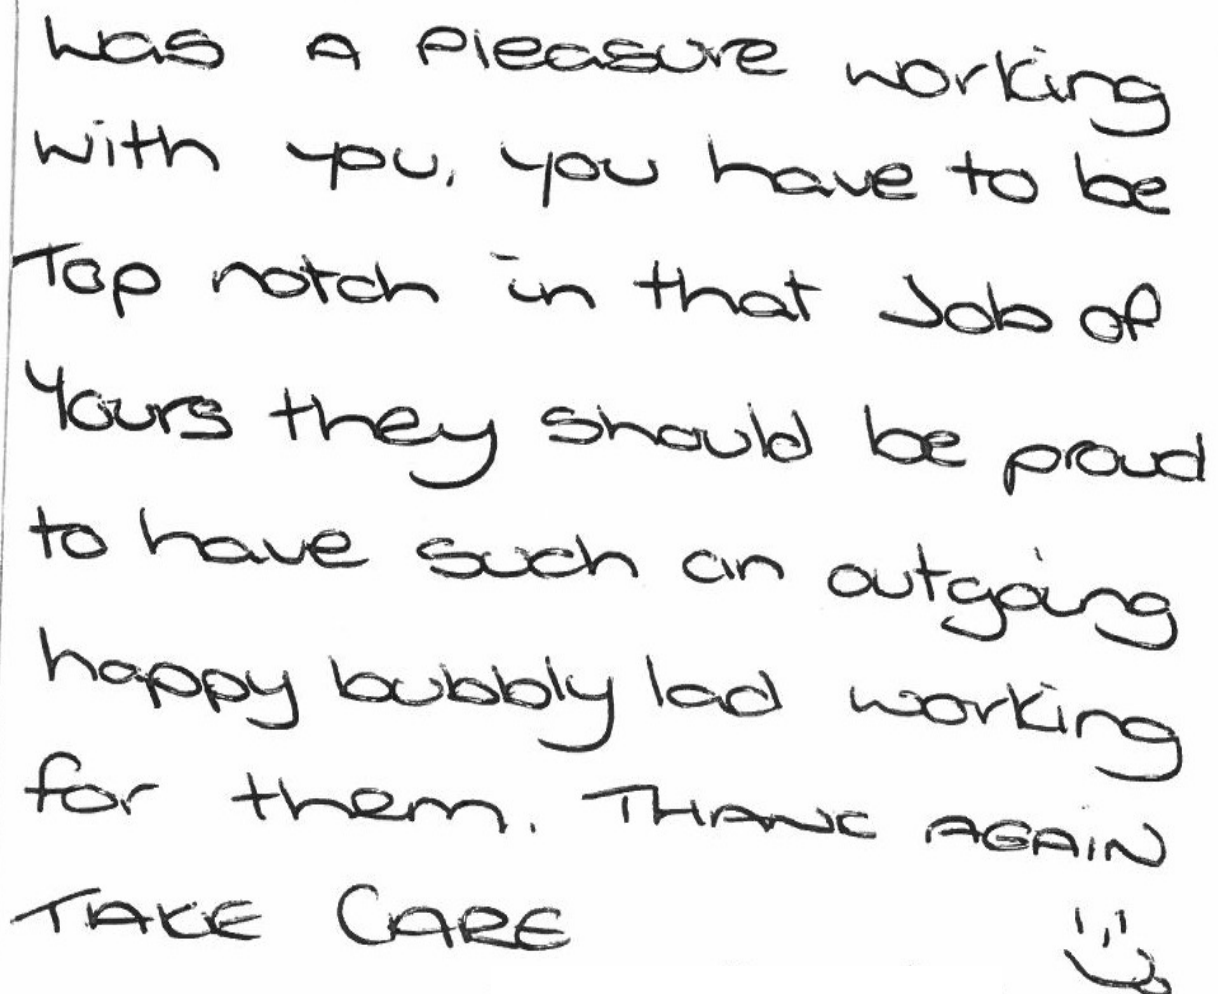 was A Pleasure working
with you, you have to be
Top notch in that Job of
Yours they should be proud
to have such an outgoing
happy bubbly lad working
for them. THANK AGAIN
TAKE CARE